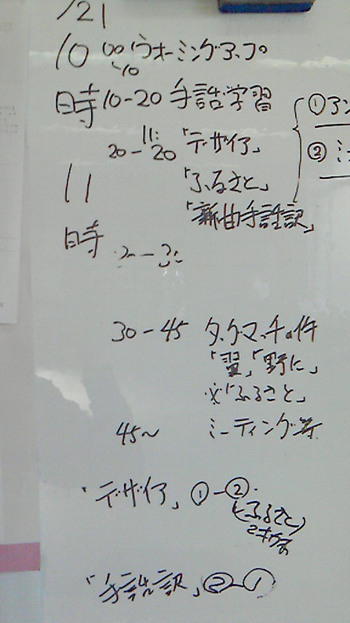 /21
10時
00〜10 ウォーミングアップ
10-20 手話学習
20-11:20 「デザイア」
① ア
11時
「ふるさと」
② ミー
「新曲手話訳」
30-45 タケマッチの件
「翼」「野に」
※「ふるさと」
45〜 ミーティング等
「デザイア」①-②
(ふるさと)
「手話訳」②-①